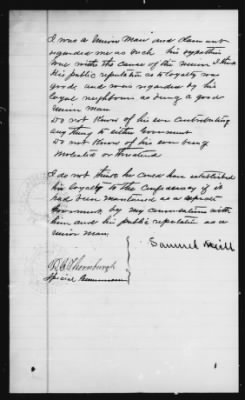 I was a Union Man and claimant
regarded me as such his sympathies
was with the cause of the union I think
His public reputation as to loyalty was
good and was regarded by his
loyal neighbors as being a good
union man
Do not know of his ever contributing
any thing to either Government
Do not know of his ever being
molested or threatened
I do not think he could have established
his loyalty to the Confederacy if it
had been maintained as a separate
Government by my conversation with
him and his public reputation as a
union man
Samuel
Special Commissioner